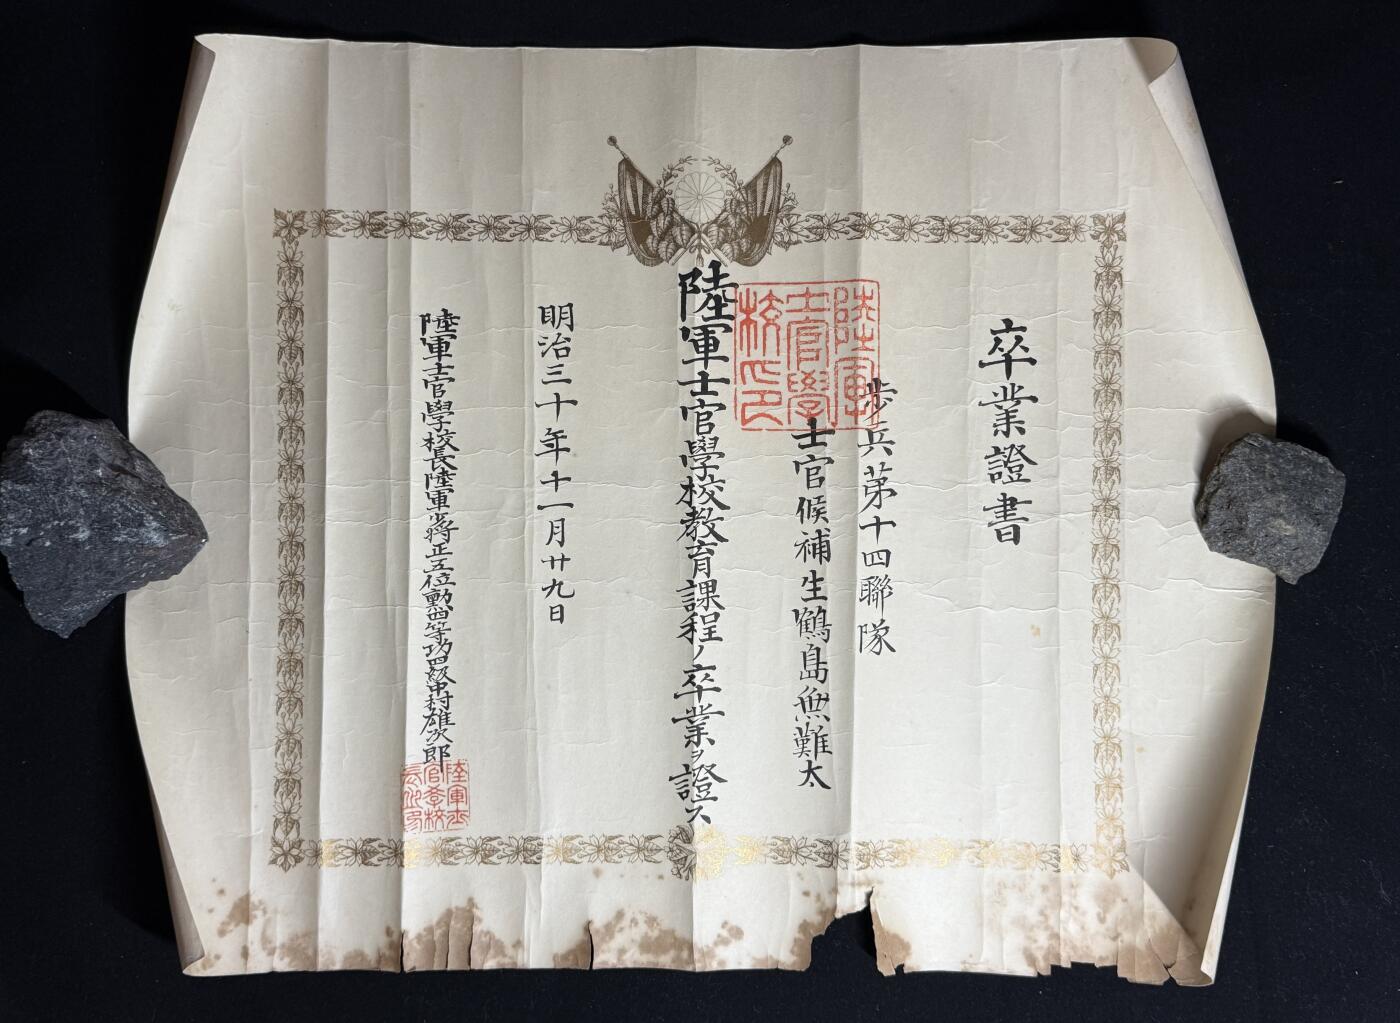 卒業證書
歩兵第十四聯隊
士官候補生鶴島無難太
陸軍士官學校教育課程ノ卒業ヲ證ス
明治三十年十一月廿九日
陸軍士官學校長陸軍少將正五位勳四等功四級中村雄次郎
陸軍
士官學
校之印
陸軍士
官學校
長之印